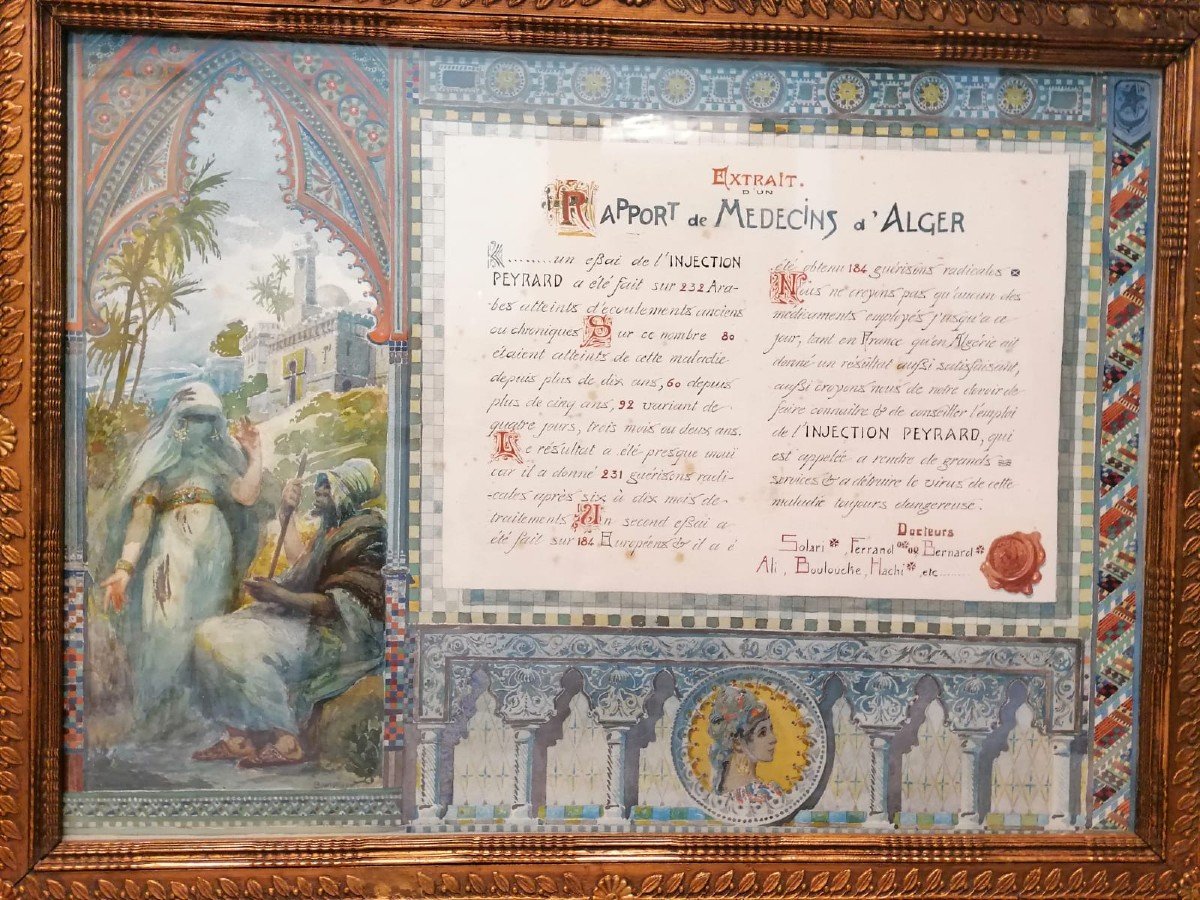 EXTRAIT.
D'UN
RAPPORT de MEDECINS d'ALGER
K.......un eßai de l'INJECTION
PEYRARD a été fait sur 232 Ara-
bes atteints d'écoulements anciens
ou chroniques Sur ce nombre 80
étaient atteints de cette maladie
depuis plus de dix ans, 60 depuis
plus de cinq ans, 92 variant de
quatre jours, trois mois ou deux ans.
Le résultat a été presque inoui
car il a donné 231 guérisons radi-
-cales après six à dix mois de
traitements Un second eßai a
été fait sur 184 Européens & il a é
été obtenu 184 guérisons radicales
Nous ne croyons pas qu'aucun des
médicaments employés jusqu'à ce
jour, tant en France qu'en Algérie ait
donné un résultat außi satisfaisant,
außi croyons nous de notre devoir de
faire connaître & de conseiller l'emploi
de l'INJECTION PEYRARD, qui
est appelée a rendre de grands
services & a détruire le virus de cette
maladie toujours dangereuse.
Docteurs
Solari, Ferrand, Bernard
Ali, Boulouche, Hachi, etc........